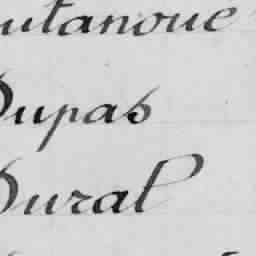 utanoue
Dupas
Dural